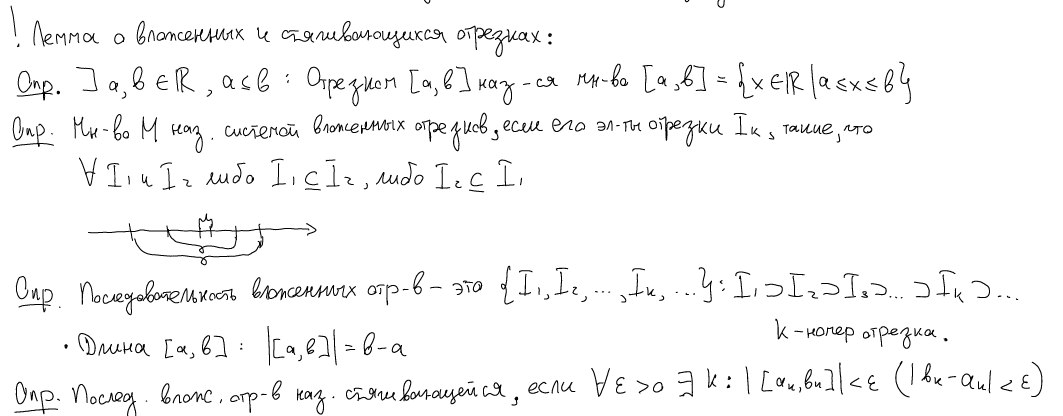 ! Лемма о вложенных и стягивающихся отрезках:
Опр. ] a, b ∈ ℝ, a ≤ b : Отрезком [a, b] наз-ся мн-во [a, b] = {x ∈ ℝ | a ≤ x ≤ b}
Опр. Мн-во M наз. системой вложенных отрезков, если его эл-ты отрезки Iₖ, такие, что
∀ I₁ и I₂ либо I₁ ⊆ I₂, либо I₂ ⊆ I₁
M
Опр. Последовательность вложенных отр-в – это {I₁, I₂, ..., Iₖ, ...} : I₁ ⊃ I₂ ⊃ I₃ ⊃ ... ⊃ Iₖ ⊃ ...
k – номер отрезка.
· Длина [a, b] : |[a, b]| = b - a
Опр. Послед. влож. отр-в наз. стягивающейся, если ∀ ε > 0 ∃ k : |[aₖ, bₖ]| < ε (|bₖ - aₖ| < ε)